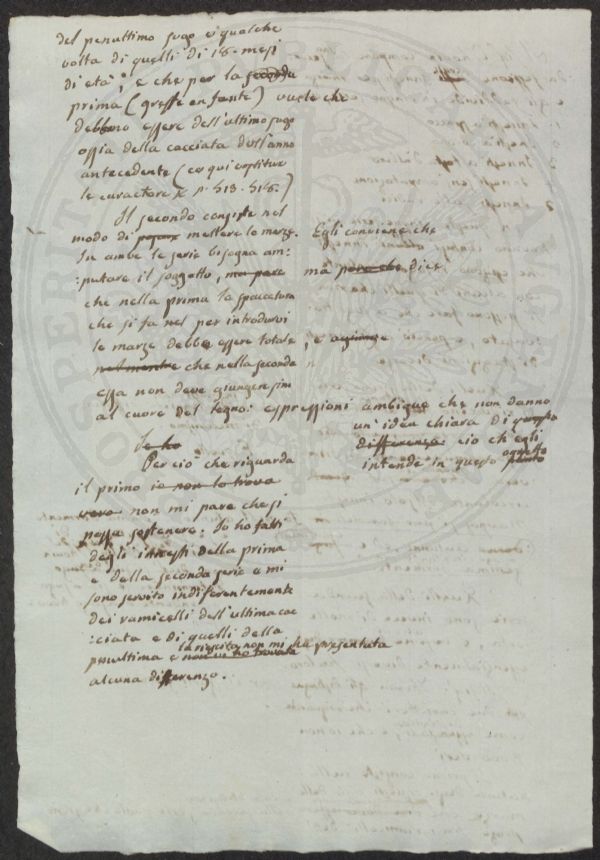 del penultimo sugo e qualche
volta di quelli di 18. mesi
di età; e che per la seconda
prima (greffe en fente) vuole che
debbono essere dell'ultimo sugo
ossia della cacciata dell'anno
antecedente (
le caractere p. 513. 518.)
Il secondo consiste nel
modo di mettere le marze. Egli conviene che
In ambe le serie bisogna am:
:putare il soggetto, ma pare ma pare che dice
che nella prima la spaccatura
che si fa nel per introdurvi
le marze debba essere totale, e aggiunge
nel mentre che nella seconda
essa non deve giungere sino
al cuore del legno: espressioni ambigue che non danno
un'idea chiara di questa
differenza ciò ch'egli
intende in questo oggetto punto
Io ho
Per ciò che riguarda
il primo io non lo trovo
vero non mi pare che si
possa sostenere: Io ho fatti
degli innesti della prima
e della seconda serie e mi
sono servito indiferentemente
dei ramicelli dell'ultima cac
:ciata e di quelli della
penultima e non vi ho trovata
la riescita non mi ha presentata
alcuna differenza.